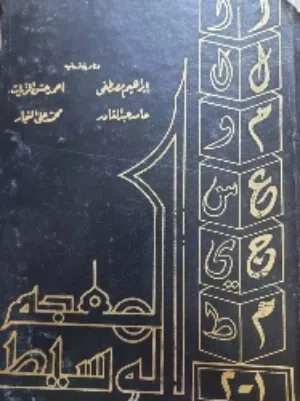 قام بإخراجه
إبراهيم مصطفى أحمد حسن الزيات
حامد عبد القادر محمد علي النجار
المعجم
الوسيط
ا
ل ل
م و
ع س
ج ي
م ط
١-٢